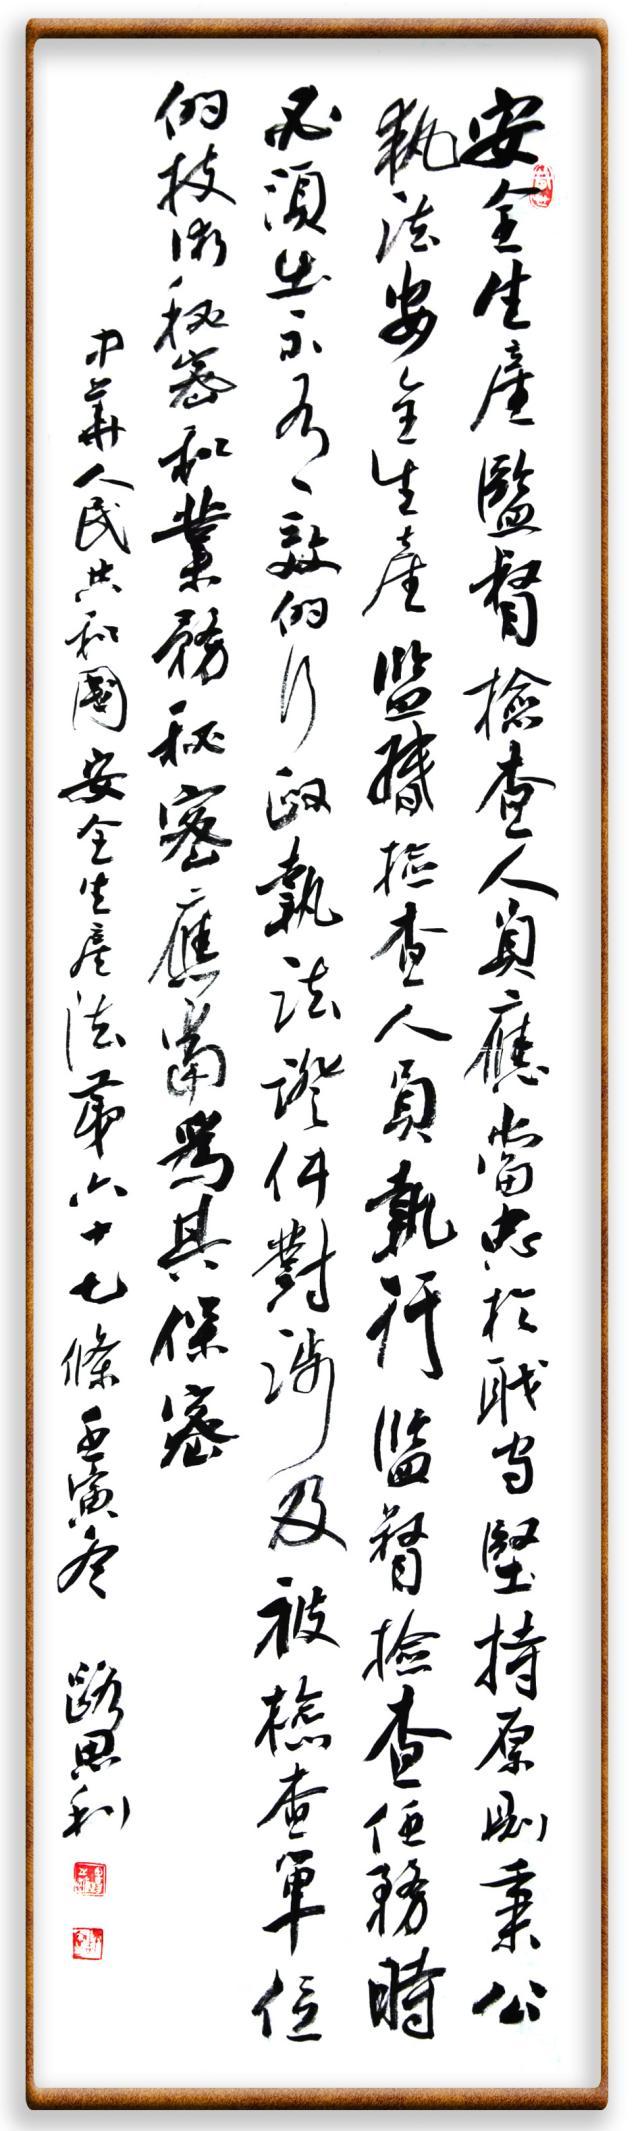 安全生產監督檢查人員應當忠於職守堅持原則秉公
執法安全生產监督檢查人員執行监督檢查任務時
必須出示有效的行政執法證件對涉及被檢查單位
的技術秘密和業務秘密應當爲其保密
中華人民共和國安全生產法第六十七條壬寅冬 路思利